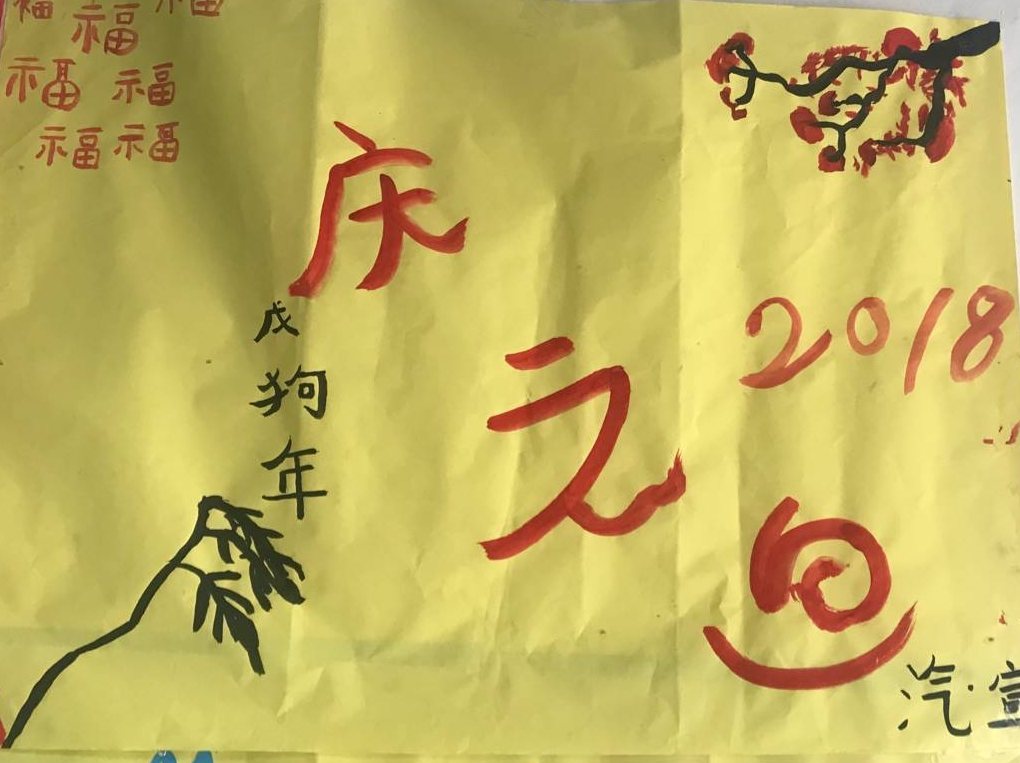 福福福
福福
福福
庆元旦
2018
戊狗年
汽·宣